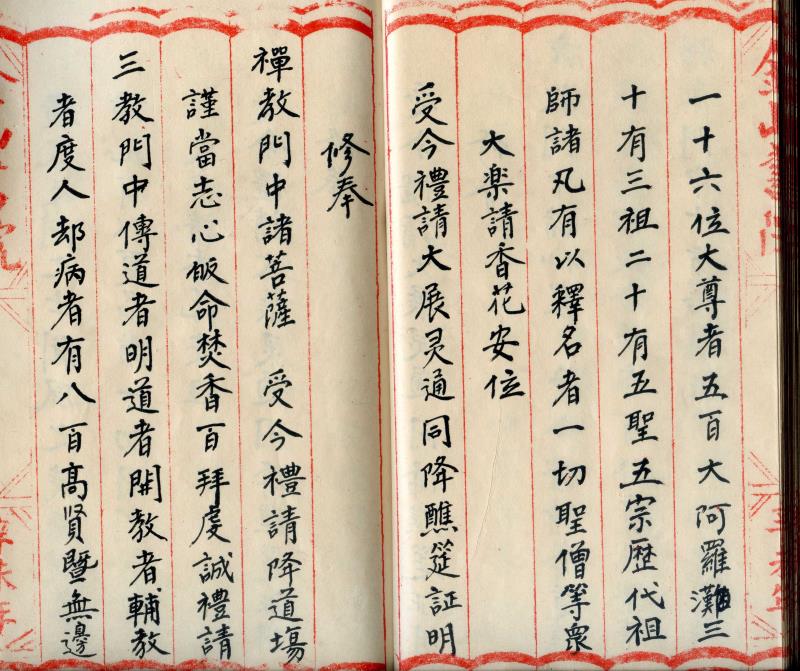 一十六位大尊者五百大阿羅漢三
十有三祖二十有五聖五宗歷代祖
師諸凡有以釋名者一切聖僧等衆
大楽請香花安位
受今禮請大展灵通同降醮筵証明
修奉
禪教門中諸菩薩 受今禮請降道場
謹當志心皈命焚香百拜虔誠禮請
三教門中傳道者明道者開教者輔教
者度人却病者有八百高贤暨無邊